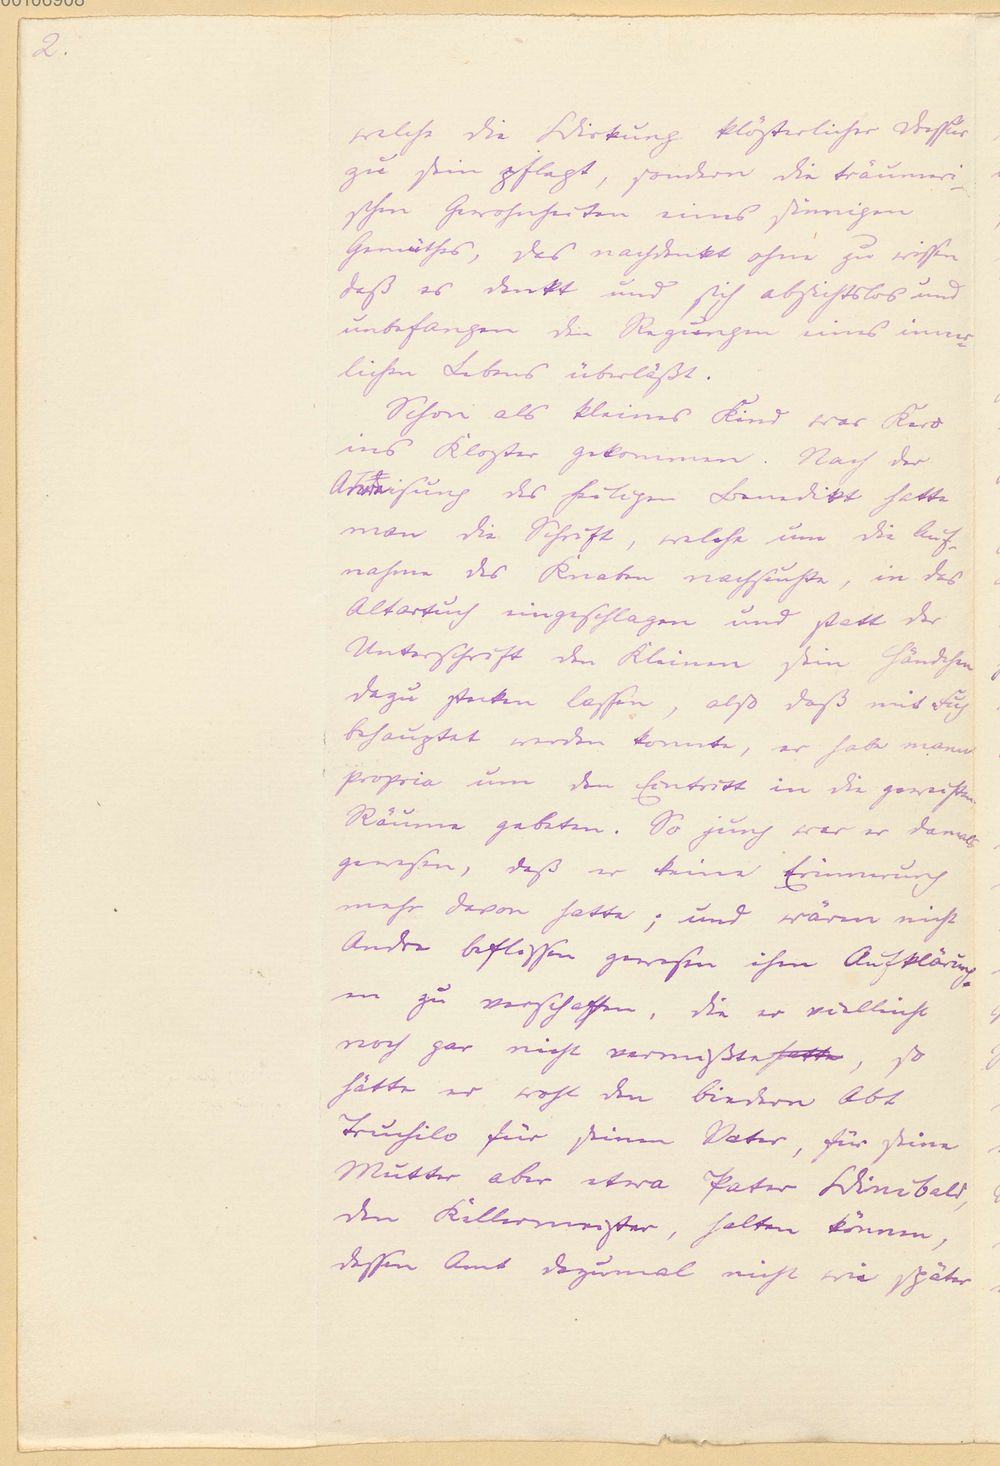 2.
welche die Wirkung klösterlicher Dressur
zu sein pflegt, sondern die träumeri-
schen Gewohnheiten eines sinnigen
Gemüthes, das nachdenkt ohne zu wissen
daß es denkt und sich absichtslos und
unbefangen den Regungen eines inner-
lichen Lebens überläßt.
Schon als kleines Kind war Kero
ins Kloster gekommen. Nach der
Anweisung des heiligen Benedikt hatte
man die Schrift, welche um die Auf-
nahme des Knaben nachsuchte, in das
Altartuch eingeschlagen und statt der
Unterschrift den Kleinen sein Händchen
dazu stecken lassen, also daß mit Fug
behauptet werden konnte, er habe manu
propria um den Eintritt in die geweihten
Räume gebeten. So jung war er damals
gewesen, daß er keine Erinnerung
mehr davon hatte; und wären nicht
Andre beflissen gewesen ihm Aufklärung-
en zu verschaffen, die er vielleicht
noch gar nicht vermißte hatte, so
hätte er wohl den biedern Abt
Truchilo für seinen Vater, für seine
Mutter aber etwa Pater Winibald,
den Kellermeister, halten können,
dessen Amt dazumal nicht wie später